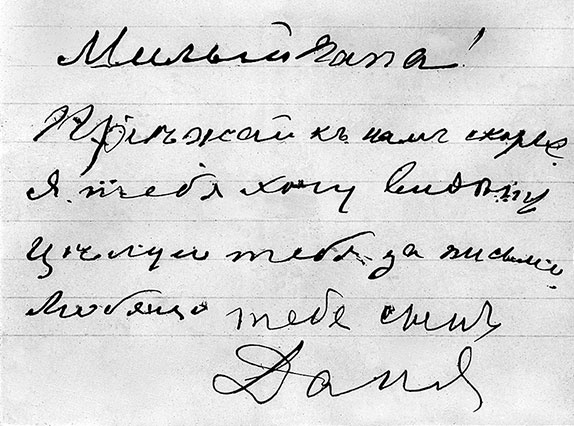 Милый папа!
Приѣжай къ намъ скорее
я тебя хочу видѣть
цѣлую тебя за письмо
Любящи тебе сынъ
Даня